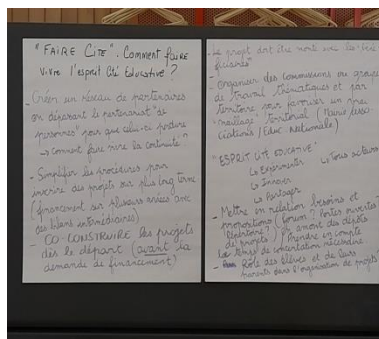 "FAIRE CITÉ". Comment FAIRE
vivre l'esprit Cité Educative?
- Créer un réseau de partenaires
en dépassant le partenariat "de
personnes" pour que celui-ci perdure
→ comment faire vivre la continuité?
- Simplifier les procédures pour
inscrire des projets sur plus long terme
(financement sur plusieurs années avec
des bilans intermédiaires)
- CO-CONSTRUIRE les projets
dès le départ (avant la
demande de financement)
- Le projet doit être monté avec les "béné
ficiaires"
- Organiser des commissions ou groupes
de travail thématiques et par
territoire pour favoriser un
"maillage" territorial (Mairie / asso
ciations / Educ Nationale)
"ESPRIT CITÉ EDUCATIVE"
↳ Expérimenter
↳ Innover
↳ Partager
- Mettre en relation besoins et
propositions (forum? Portes ouvertes
) en amont des dépôts
de projets / Prendre en compte
le temps de concertation nécessaire
- Rôle des élèves et de leurs
parents dans l'organisation de projets